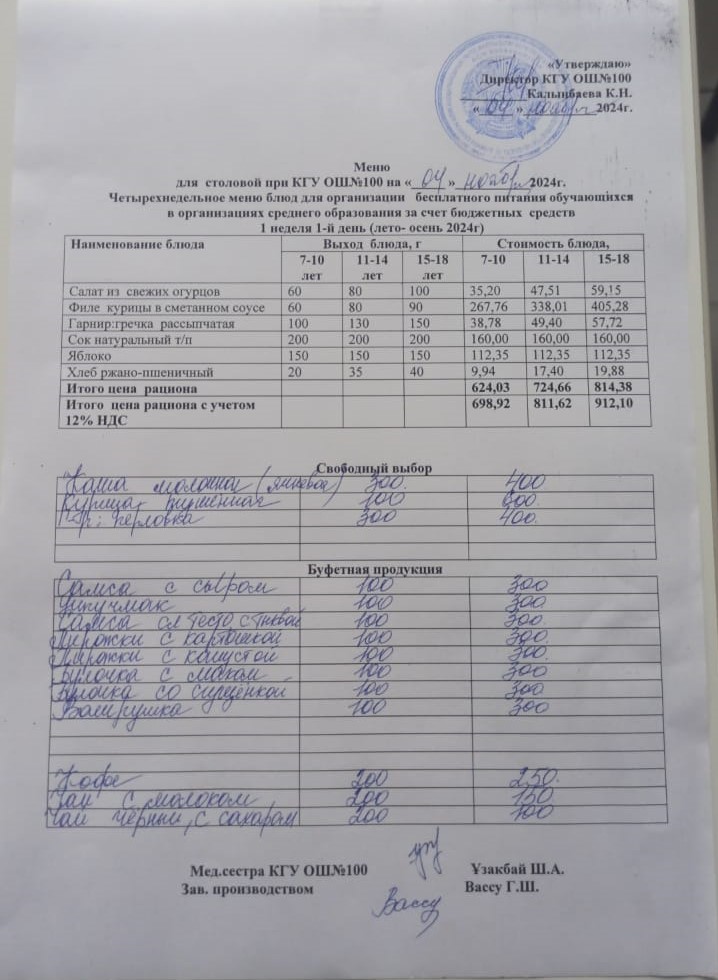 «Утверждаю»
Директор КГУ ОШ№100
Калынбаева К.Н.
« 04 » ноября 2024г.
Меню
для столовой при КГУ ОШ№100 на « 04 » ноября 2024г.
Четырехнедельное меню блюд для организации бесплатного питания обучающихся
в организациях среднего образования за счет бюджетных средств
1 неделя 1-й день (лето- осень 2024г)
Наименование блюда Выход блюда, г Стоимость блюда,
7-10 лет 11-14 лет 15-18 лет 7-10 11-14 15-18
Салат из свежих огурцов 60 80 100 35,20 47,51 59,15
Филе курицы в сметанном соусе 60 80 90 267,76 338,01 405,28
Гарнир:гречка рассыпчатая 100 130 150 38,78 49,40 57,72
Сок натуральный т/п 200 200 200 160,00 160,00 160,00
Яблоко 150 150 150 112,35 112,35 112,35
Хлеб ржано-пшеничный 20 35 40 9,94 17,40 19,88
Итого цена рациона 624,03 724,66 814,38
Итого цена рациона с учетом 698,92 811,62 912,10
12% НДС
Свободный выбор
Каша молочная 300. 400
Курица 100 600
Гр: перловка 300 400.
Буфетная продукция
Самса с сыром 100 300
Учпучмак 100 300
Самса сл тесто с тыквой 100 300.
Пирожки с картошкой 100 300
Пирожки с капустой 100 300.
Булочка с маком 100 300
Булочка со сгущенкой 100 300
Ватрушка 100 300
Кофе 200 250.
Чай с молоком 200 150
Чай чёрный, с сахаром 200 100
Мед.сестра КГУ ОШ№100 Ұзакбай Ш.А.
Зав. производством Вассу Г.Ш.
Вассу